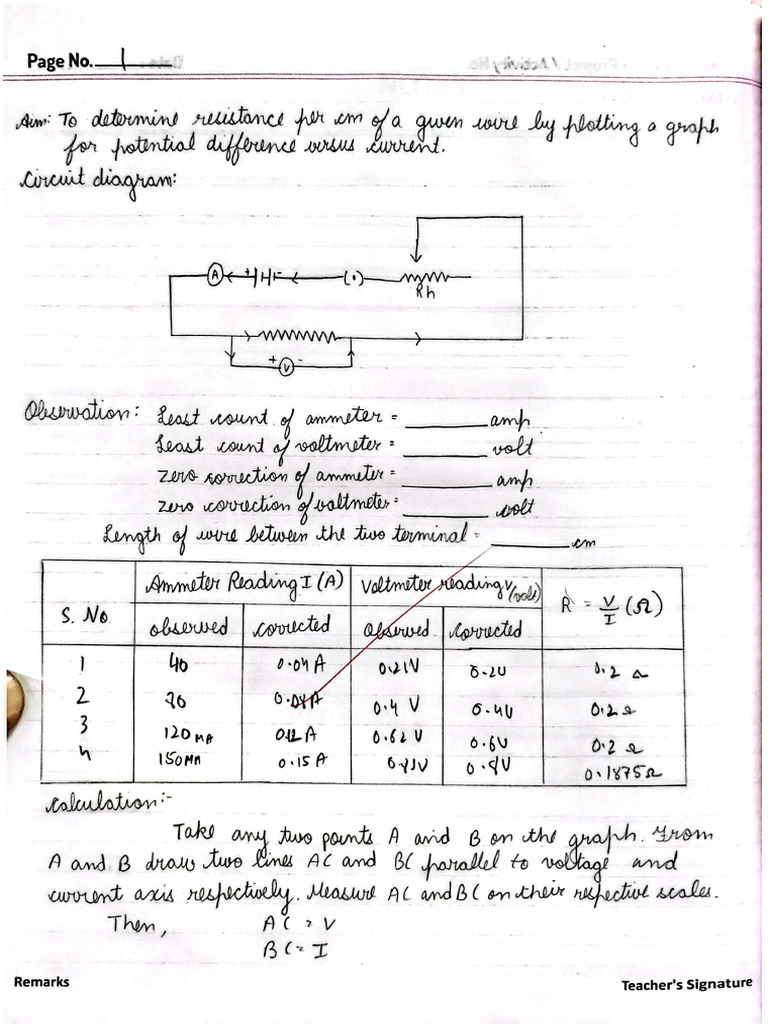 Page No. 1
Aim: To determine resistance per cm of a given wire by plotting a graph
for potential difference versus current.
Circuit diagram:
A + - (.) Rh
+ V -
Observation: Least count of ammeter = ________ amp
Least count of voltmeter = ________ volt
Zero correction of ammeter = ________ amp
Zero correction of voltmeter = ________ volt
Length of wire between the two terminal = ________ cm
S. No Ammeter Reading I (A) Voltmeter reading V (volt) R = V/I (Ω)
observed corrected Observed corrected
1 40 0.04 A 0.21V 0.2V 0.2 Ω
2 0.4 V 0.4V 0.2 Ω
3 120 mA 0.12 A 0.62 V 0.6V 0.2 Ω
4 150mA 0.15 A 0.8V 0.1875Ω
Calculation:-
Take any two points A and B on the graph. From
A and B draw two lines AC and BC parallel to voltage and
current axis respectively. Measure AC and BC on their respective scales.
Then, AC = V
BC = I
Remarks
Teacher's Signature